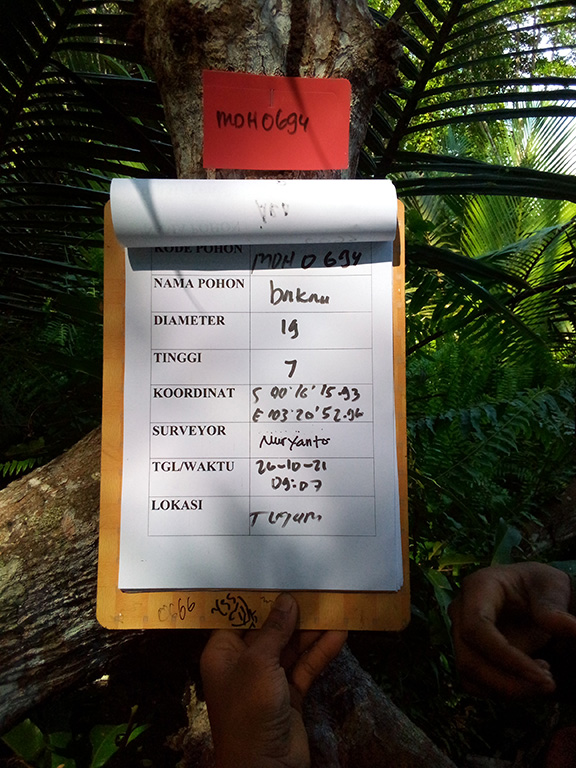 MDH0694
KODE POHON MDH 0 694
NAMA POHON bakau
DIAMETER 19
TINGGI 7
KOORDINAT S 00°16'15.93
E 103°20'52.96
SURVEYOR Nuryanto
TGL/WAKTU 26-10-21
09:07
LOKASI
0666